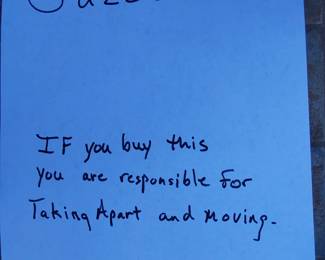 IF you buy this
you are responsible for
Taking Apart and Moving.